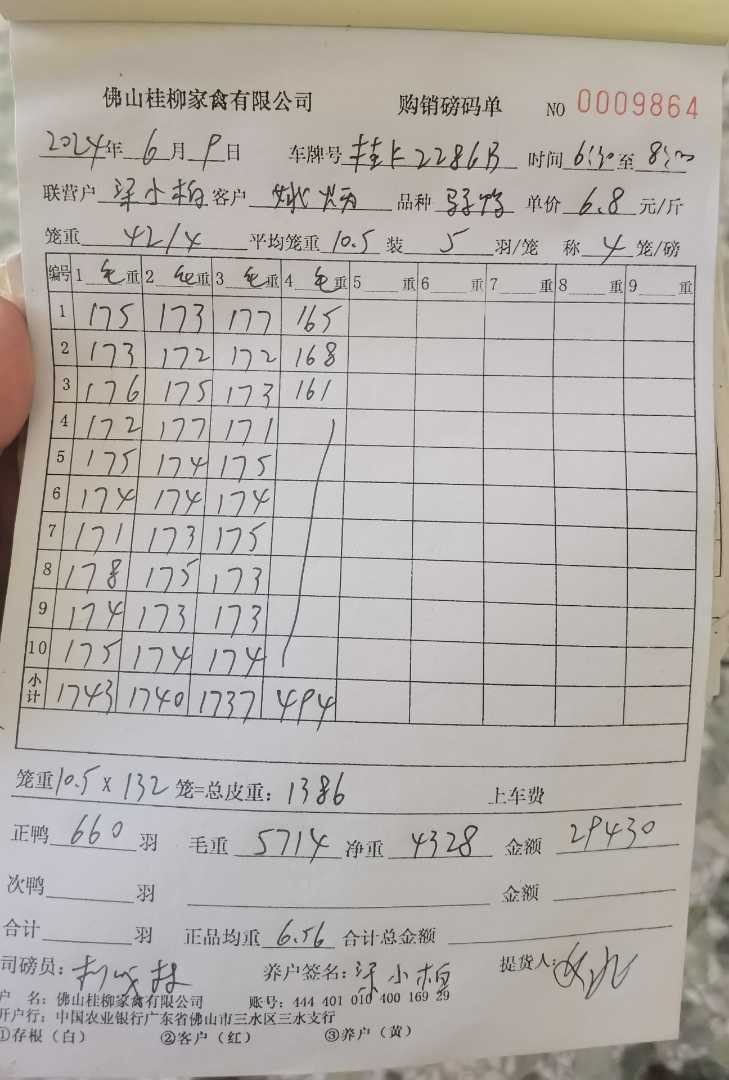 佛山桂柳家禽有限公司 购销磅码单 NO 0009864
2024年 6月 9日 车牌号 桂K2286B 时间 6:30 至 8:00
联营户 梁小柏 客户 品种 单价 6.8 元/斤
笼重 42/4 平均笼重 10.5 装 5 羽/笼 称 4 笼/磅
编号 1 毛重 2 毛重 3 毛重 4 毛重 5 重 6 重 7 重 8 重 9 重
1 175 173 177 165
2 173 172 172 168
3 176 175 173 161
4 172 177 171
5 175 174 175
6 174 174 174
7 171 173 175
8 178 175 173
9 174 173 173
10 175 174 174
小计 1743 1740 1737 494
笼重 10.5 x 132 笼=总皮重：1386 上车费
正鸭 660 羽 毛重 5714 净重 4328 金额 29430
次鸭 羽 金额
合计 羽 正品均重 6.56 合计总金额
司磅员： 养户签名：梁小柏 提货人：
户 名：佛山桂柳家禽有限公司 账号：444 401 010 400 169 29
开户行：中国农业银行广东省佛山市三水区三水支行
①存根（白） ②客户（红） ③养户（黄）